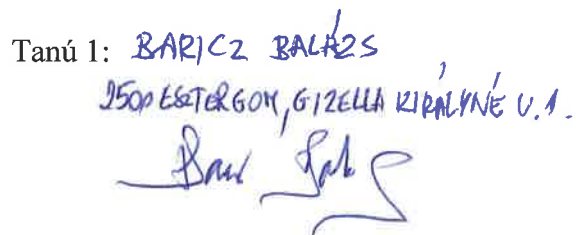 Tanú 1: BARICZ BALÁZS
2500 ESZTERGOM, GIZELLA KIRÁLYNÉ U. 1.